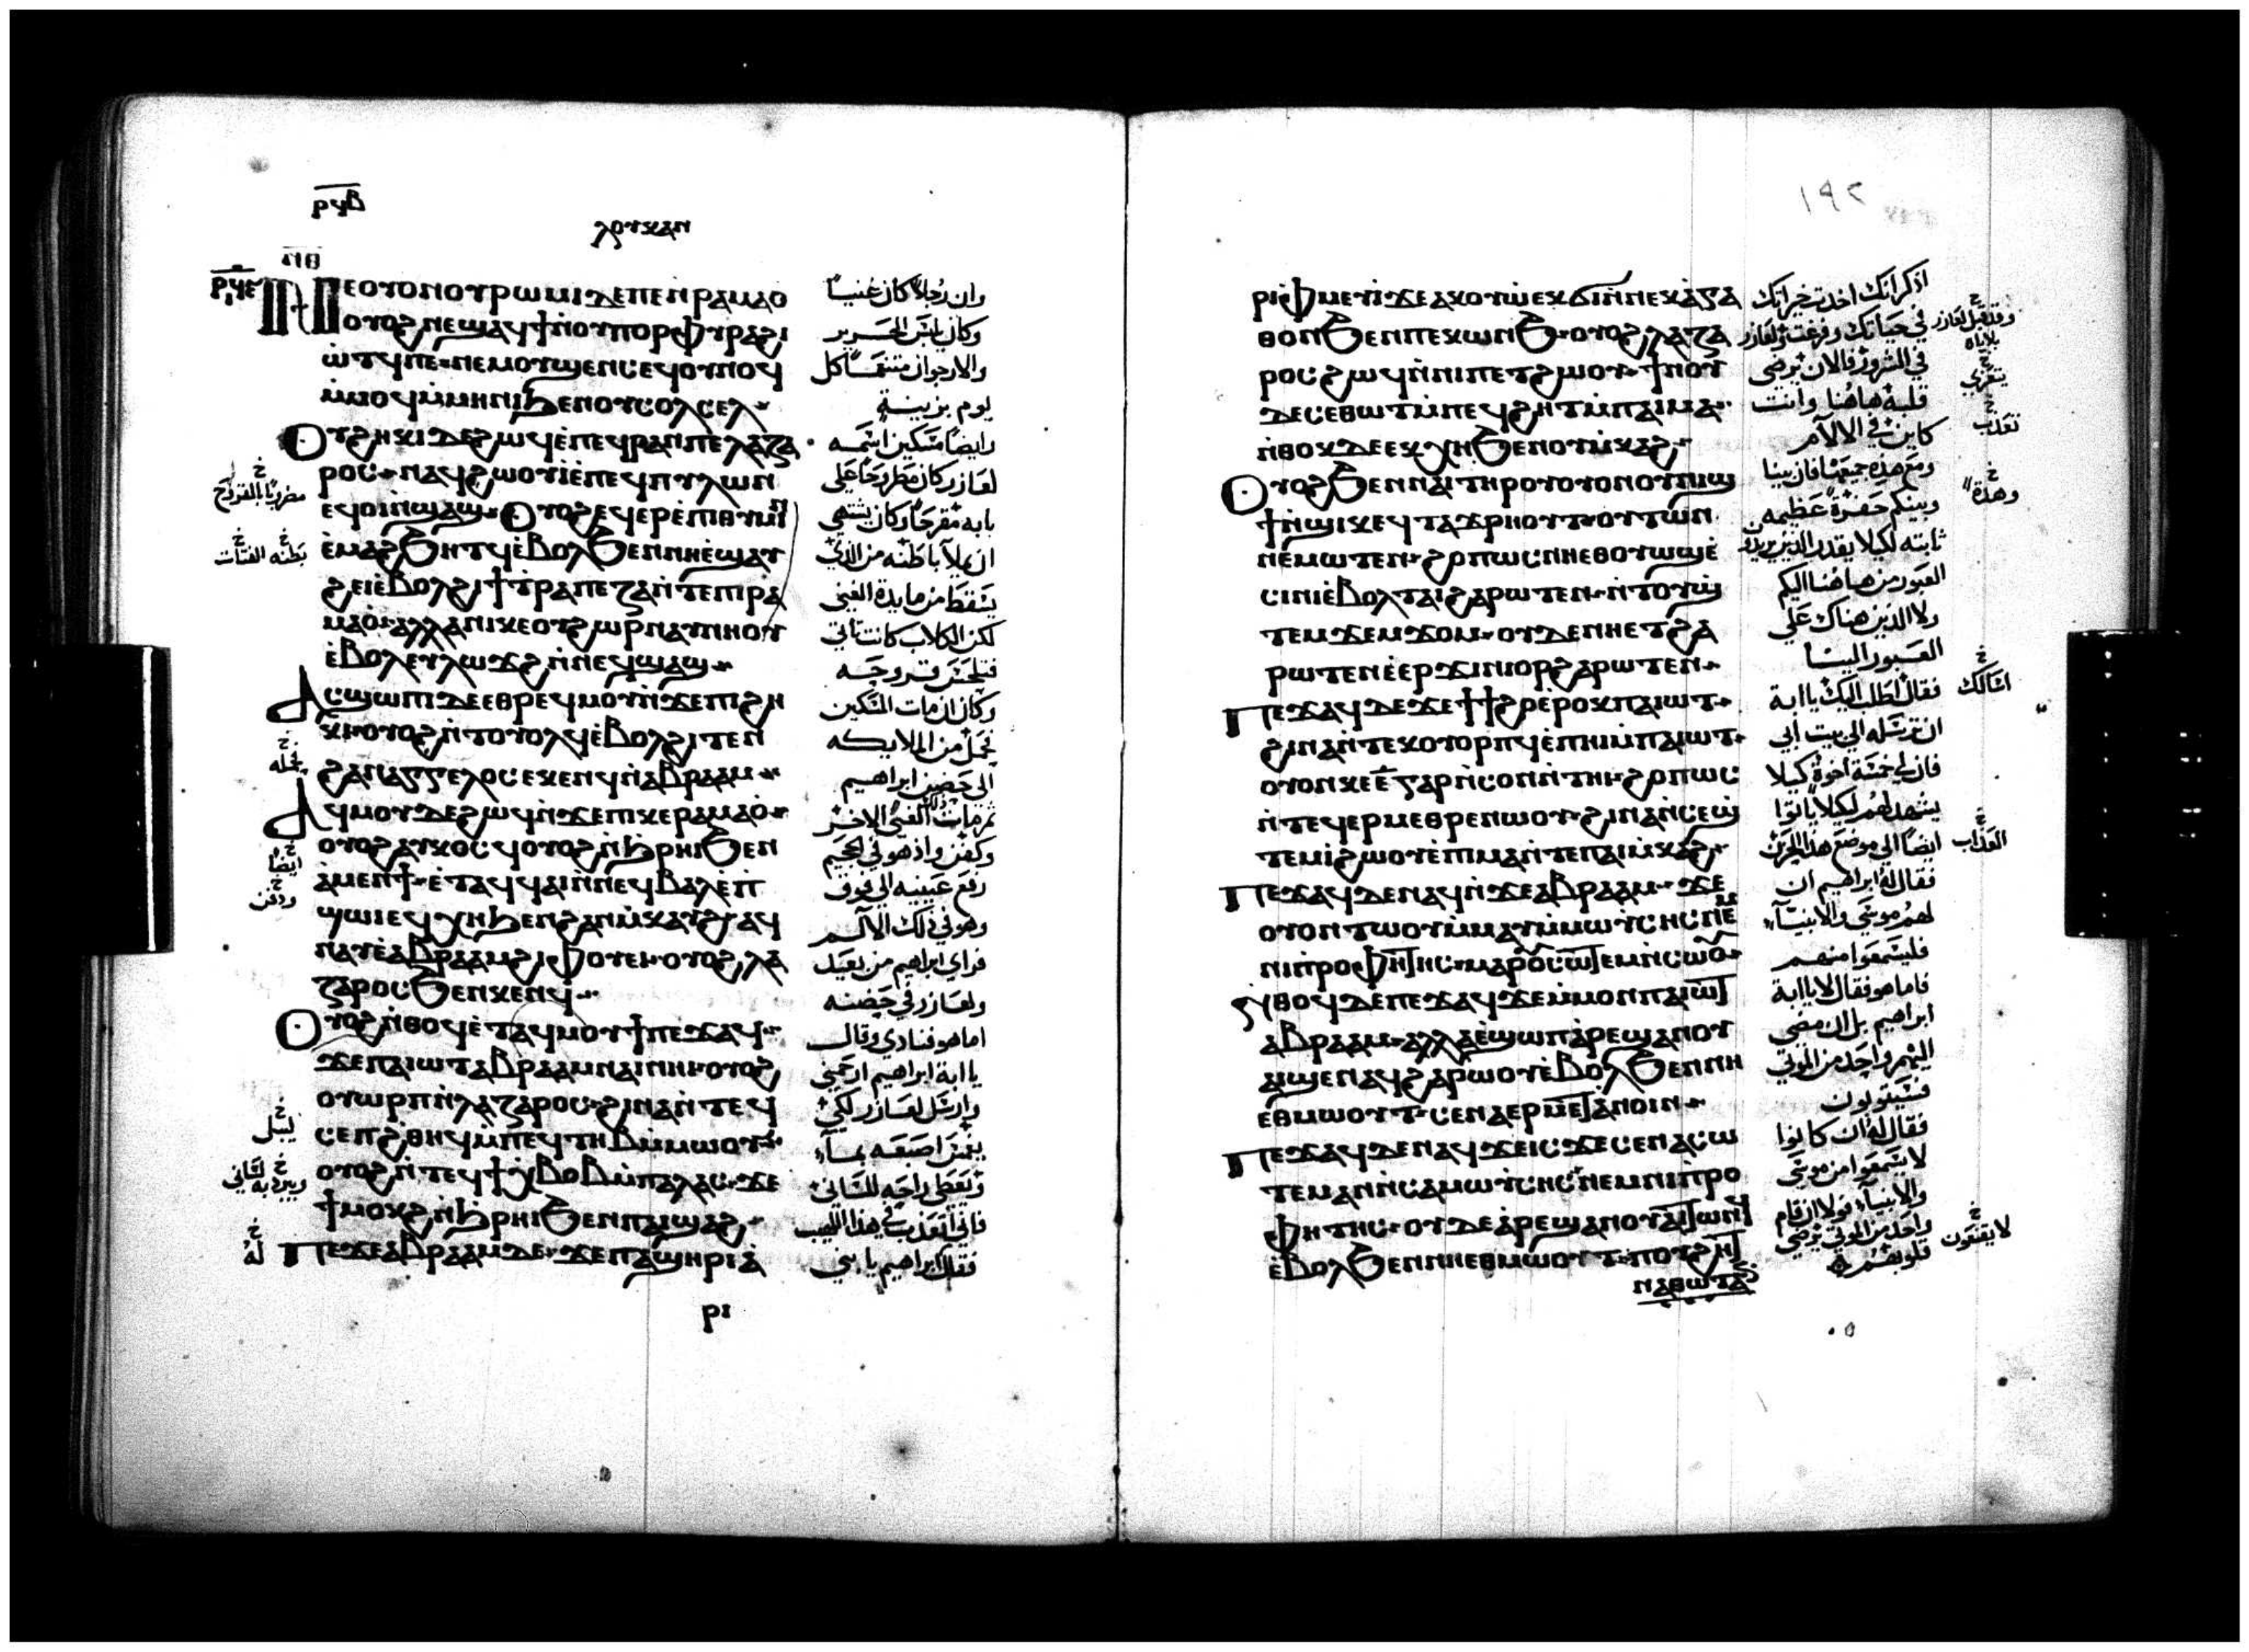 ⲣϥⲃ
ⲗⲟⲩⲕⲁⲛ
ⲛⲑ
ⲛⲉⲟⲩⲟⲛⲟⲩⲣⲱⲙⲓⲇⲉⲡⲉⲛ̀ⲣⲁⲙⲁⲟ
ⲟⲩⲟϩⲛⲉϣⲁϥϯⲛ̀ⲟⲩⲡⲟⲣⲫⲩⲣⲁϩⲓ
ⲱ̀ⲧϥⲡⲉ ⲛⲉⲙⲟⲩϣⲉⲛⲥ ⲉϥⲟⲩⲛⲟϥ
ⲙ̀ⲙⲟϥⲙ̀ⲙⲏⲛⲓϧⲉⲛⲟⲩⲥⲟⲗⲥⲉⲗ
ⲟⲩϩⲏⲕⲓⲇⲉϩⲱϥⲉ̀ⲡⲉϥⲣⲁⲛⲡⲉⲗⲁⲍⲁ
ⲣⲟⲥ ⲛⲁϥϩⲱⲟⲩⲓⲉ̀ⲡⲉϥⲡⲩⲗⲱⲛ
ⲉϥⲟⲓⲛ̀ϣⲁϣ ⲟⲩⲟϩⲉϥⲉⲣⲉ̀ⲡⲓⲑⲩⲙⲓⲛ
ⲉ̀ⲙⲁϩϧⲏⲧϥⲉ̀ⲃⲟⲗϧⲉⲛⲛⲏⲉ̀ϣⲁⲩ
ϩⲉⲓⲉ̀ⲃⲟⲗϩⲓϯⲧ̀ⲣⲁⲡⲉⲍⲁⲛ̀ⲧⲉⲡⲓⲣⲁ
ⲙⲁⲟ̀ ⲁⲗⲗⲁⲛⲓⲕⲉⲟⲩϩⲱⲣⲛⲁⲩⲛⲏⲟⲩ
ⲉ̀ⲃⲟⲗⲉⲩⲗⲱϫϩⲛ̀ⲛⲉϥϣⲁϣ
ⲁⲥϣⲱⲡⲓⲇⲉⲉⲑⲣⲉϥⲙⲟⲩⲛ̀ϫⲉⲡⲓϩⲏ
ⲕⲓ ⲟⲩⲟϩⲛ̀ⲧⲟⲩⲟⲗϥⲉ̀ⲃⲟⲗϩⲓⲧⲉⲛ
ϩⲁⲛⲁⲅⲅⲉⲗⲟⲥⲉⲕⲉⲛϥⲛ̀ⲁⲃⲣⲁⲁⲙ
ⲁϥⲙⲟⲩⲇⲉϩⲱϥⲛ̀ϫⲉⲡⲓⲕⲉⲣⲁⲙⲁⲟ̀
ⲟⲩⲟϩⲁⲩⲕⲟⲥϥⲟⲩⲟϩⲛ̀ϩⲣⲏⲓϧⲉⲛ
ⲁ̀ⲙⲉⲛϯ ⲉ̀ⲧⲁϥϥⲁⲓⲛ̀ⲛⲉϥⲃⲁⲗⲉ̀ⲡ
ϣⲱⲓⲉϥⲭⲏϧⲉⲛϩⲁⲛⲙ̀ⲕⲁⲩϩⲁϥ
ⲛⲁⲩⲉ̀ⲁⲃⲣⲁⲁⲙϩⲓⲫⲟⲩⲉⲓ ⲟⲩⲟϩⲗⲁ
ⲍⲁⲣⲟⲥϧⲉⲛⲕⲉⲛϥ
ⲟⲩⲟϩⲛ̀ⲑⲟϥⲉ̀ⲧⲁϥⲙⲟⲩϯⲡⲉϫⲁϥ
ϫⲉⲡⲁⲓⲱⲧⲁⲃⲣⲁⲁⲙⲛⲁⲓⲛⲏⲓ ⲟⲩⲟϩ
ⲟⲩⲱⲣⲡⲛ̀ⲗⲁⲍⲁⲣⲟⲥ ϩⲓⲛⲁⲛ̀ⲧⲉϥ
ⲥⲉⲡϩ̀ⲑⲏϥⲙ̀ⲡⲉϥⲧⲏⲃⲙ̀ⲙⲱⲟⲩ
ⲟⲩⲟϩⲛ̀ⲧⲉϥϯⲭⲃⲟⲃⲙ̀ⲡⲁⲗⲁⲥ ϫⲉ
ϯⲙⲟⲕϩⲛ̀ϩⲣⲏⲓϧⲉⲛⲡⲁⲓϣⲁϩ
ⲡⲉϫⲉⲁⲃⲣⲁⲁⲙⲇⲉ ϫⲉⲡⲁϣⲏⲣⲓⲁ̀
ⲣⲓ
وان رجلاً كان غنياً
وكان يلبس الحرير
والارجوان متنعماً كل
يوم بزينة
وايضاً مسكين اسمه
لعازر كان مطروحاً علي
بابه مقرحاً وكان يشتهي
ان يملا باطنه من الذي
يسقط من مايدة الغني
لكن الكلاب كانت تأتي
فتلحس قروحه
وكان ان مات المسكين
فحمل من الملايكه
الي حضن ابراهيم
ثم مات الغني الاخر
وكفن واذ هو في الجحيم
رفع عينيه الي فوق
وهو في ذلك الآلم
فراي ابراهيم من بعيد
ولعازر في حضنه
اما هو فنادي وقال
يا ابة ابراهيم ارحمني
وارسل لعازر لكي
يغمس اصبعه بماء
ويعطي راحه للساني
فاني اتعذب في هذا اللهيب
فقال ابراهيم يا بني
يحمله
ايضاً
ودفن
يبل
له
١٩٢
ⲣⲓⲫⲙⲉⲩⲓ̀ϫⲉⲁⲕⲟⲩⲱ̀ⲉⲕϭⲓⲛ̀ⲛⲉⲕⲁ̀ⲅⲁ
ⲑⲟⲛϧⲉⲛⲡⲉⲕⲱⲛϧ ⲟⲩⲟϩⲗⲁⲍⲁ
ⲣⲟⲥϩⲱϥⲛ̀ⲛⲓⲡⲉⲧϩⲱⲟⲩ ϯⲛⲟⲩ
ⲇⲉⲥⲉⲑⲱⲧⲙ̀ⲡⲉϥϩⲏⲧⲙ̀ⲡⲁⲓⲙⲁ
ⲛ̀ⲑⲟⲕⲇⲉⲉⲕⲭⲏϧⲉⲛⲟⲩⲙ̀ⲕⲁϩ
ⲟⲩⲟϩϧⲉⲛⲛⲁⲓⲧⲏⲣⲟⲩⲟⲩⲟⲛⲟⲩⲛⲓϣ
ϯⲛ̀ϣⲓⲕⲉϥⲧⲁϫⲣⲏⲟⲩⲧ ⲟⲩⲧⲱⲛ
ⲛⲉⲙⲱⲧⲉⲛ ϩⲟⲡⲱⲥⲛⲏⲉⲑⲟⲩⲱϣⲉ̀
ⲥⲓⲛⲓⲉ̀ⲃⲟⲗⲧⲁⲓϩⲁⲣⲱⲧⲉⲛ ⲛ̀ⲧⲟⲩϣ̀
ⲧⲉⲙϫⲉⲙϫⲟⲙ ⲟⲩⲇⲉⲛⲏⲉⲧϩⲁ
ⲣⲱⲧⲉⲛⲉ̀ⲉⲣϫⲓⲛⲓⲟⲣϩⲁⲣⲱⲧⲉⲛ
ⲡⲉϫⲁϥⲇⲉϫⲉϯϯϩⲟⲉ̀ⲣⲟⲕⲡⲁⲓⲱⲧ
ϩⲓⲛⲁⲛ̀ⲧⲉⲕⲟⲩⲟⲣⲡϥⲉ̀ⲡⲏⲓⲙ̀ⲡⲁⲓⲱⲧ
ⲟⲩⲟⲛⲕⲉⲉ̅ⲅⲁⲣⲛ̀ⲥⲟⲛⲛ̀ⲧⲏⲓ ϩⲟⲡⲱⲥ
ⲛ̀ⲧⲉϥⲉⲣⲙⲉⲑⲣⲉⲛⲱⲟⲩ ϩⲓⲛⲁⲛ̀ⲥⲉϣ̀
ⲧⲉⲙⲓ̀ϩⲱⲟⲩⲉ̀ⲡⲓⲙⲁⲛ̀ⲧⲉⲡⲁⲓⲙ̀ⲕⲁϩ
ⲡⲉϫⲁϥⲇⲉⲛⲁϥⲛ̀ϫⲉⲁⲃⲣⲁⲁⲙ ϫⲉ
ⲟⲩⲟⲛⲧⲱⲟⲩⲙ̀ⲙⲁⲩⲙ̀ⲙⲱⲩ̀ⲥⲏⲥⲛⲉⲙ
ⲛⲓⲡ̀ⲣⲟⲫⲏⲧⲏⲥ ⲙⲁⲣⲟⲩⲥⲱⲧⲉⲙⲛ̀ⲥⲱⲟⲩ
ⲛ̀ⲑⲟϥⲇⲉⲡⲉϫⲁϥϫⲉⲙ̀ⲙⲟⲛⲡⲁⲓⲱⲧ
ⲁⲃⲣⲁⲁⲙ ⲁⲗⲗⲁⲉ̀ϣⲱⲡⲁ̀ⲣⲉϣⲁⲛⲟⲩ
ⲁⲓϣⲉⲛⲁϥϩⲁⲣⲱⲟⲩⲉ̀ⲃⲟⲗϧⲉⲛⲛⲏ
ⲉⲑⲙⲱⲟⲩⲧ ⲥⲉⲛⲁⲉⲣⲙⲉⲧⲁⲛⲟⲓⲛ
ⲡⲉϫⲁϥⲇⲉⲛⲁϥϫⲉⲓⲥϫⲉⲥⲉⲛⲁⲥⲱ
ⲧⲉⲙⲁⲛⲛ̀ⲥⲁⲙⲱⲩ̀ⲥⲏⲥⲛⲉⲙⲛⲓⲡ̀ⲣⲟ
ⲫⲏⲧⲏⲥ ⲟⲩⲇⲉⲁ̀ⲣⲉϣⲁⲛⲟⲩⲁⲓⲧⲱⲛϥ
ⲉ̀ⲃⲟⲗϧⲉⲛⲛⲏⲉⲑⲙⲱⲟⲩⲧ ⲡⲟⲩϩⲏⲧ
ⲛⲁⲑⲱⲧⲁⲛ
اذكر انك اخدت خيراتك
في حياتك ولعازر
في الشرور فالان يرضي
قلبه هاهنا وانت
كاين في الالام
ومع هذه جميعها فان بيننا
وبينكم حفرة عظيمه
ثابته لكيلا يقدر الذين يريدو
العبور من هاهنا اليكم
ولا الذين هناك علي
العبور الينا
فقال اطلب اليك يا ابة
ان ترسله الي بيت ابي
فان لي خمسة اخوة كيلا
يشهد لهم لكيلا ياتوا
ايضاً الي موضع هذا الحزن
فقال له ابراهيم ان
لهم موسي والانبياء
فليسمعوا منهم
فاما هو فقال لا يا ابة
ابراهيم بل ان مضي
اليهم واحد من الموتي
فسيتوبون
فقال له ان كانوا
لا يسمعوا من موسي
والانبياء فولا ان قام
واحد من الموتي يرضي
قلوبهم
يتعزي
تعذب
وهذه
اسالك
العذاب
لا يقنعون